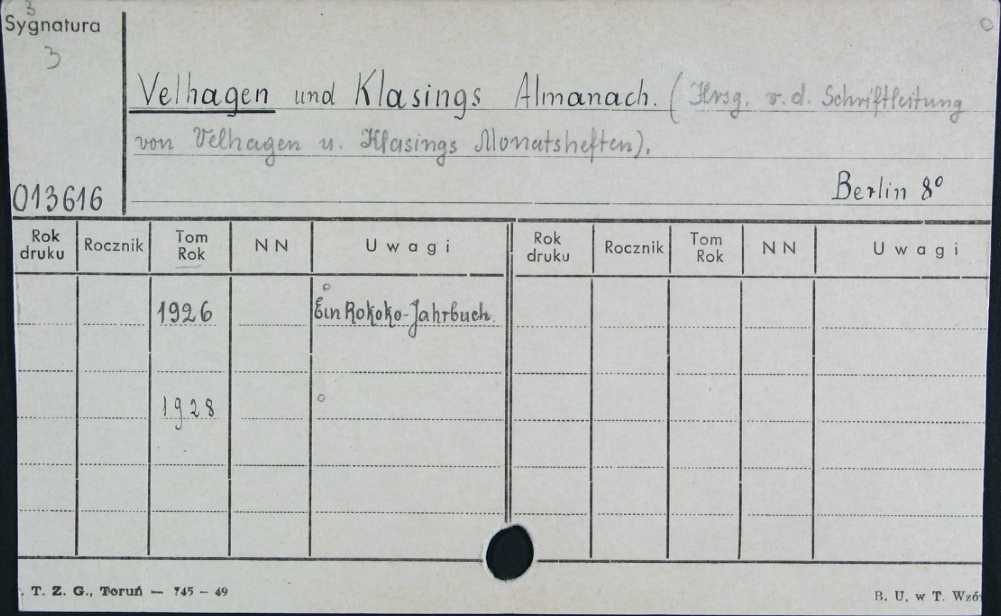 3
Sygnatura
3
Velhagen und Klasings Almanach. (Hrsg. v. d. Schriftleitung
von Velhagen u. Klasings Monatsheften).
013616
Berlin 8°
Rok druku Rocznik Tom Rok NN Uwagi Rok druku Rocznik Tom Rok NN Uwagi
1926 Ein Rokoko-Jahrbuch.
1928
T. Z. G., Toruń — 745 — 49
B. U. w T. Wzó